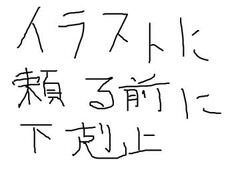 イラストに
頼る前に
下剋上